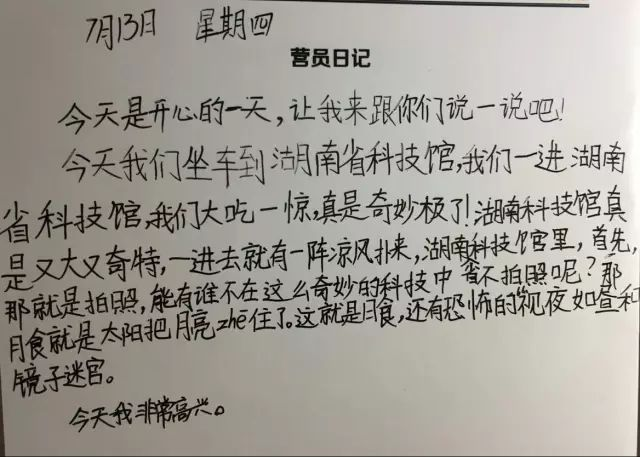 7月13日 星期四
营员日记
今天是开心的一天，让我来跟你们说一说吧！
今天我们坐车到湖南省科技馆，我们一进湖南
省科技馆，我们大吃一惊，真是奇妙极了！湖南科技馆真
是又大又奇特，一进去就有一阵凉风扑来，湖南科技馆里，首先，
那就是拍照，能有谁不在这么奇妙的科技中省不拍照呢？那
月食就是太阳把月亮zhē住了。这就是月食，还有恐怖的“视夜如昼和
镜子迷宫。
今天我非常高兴。